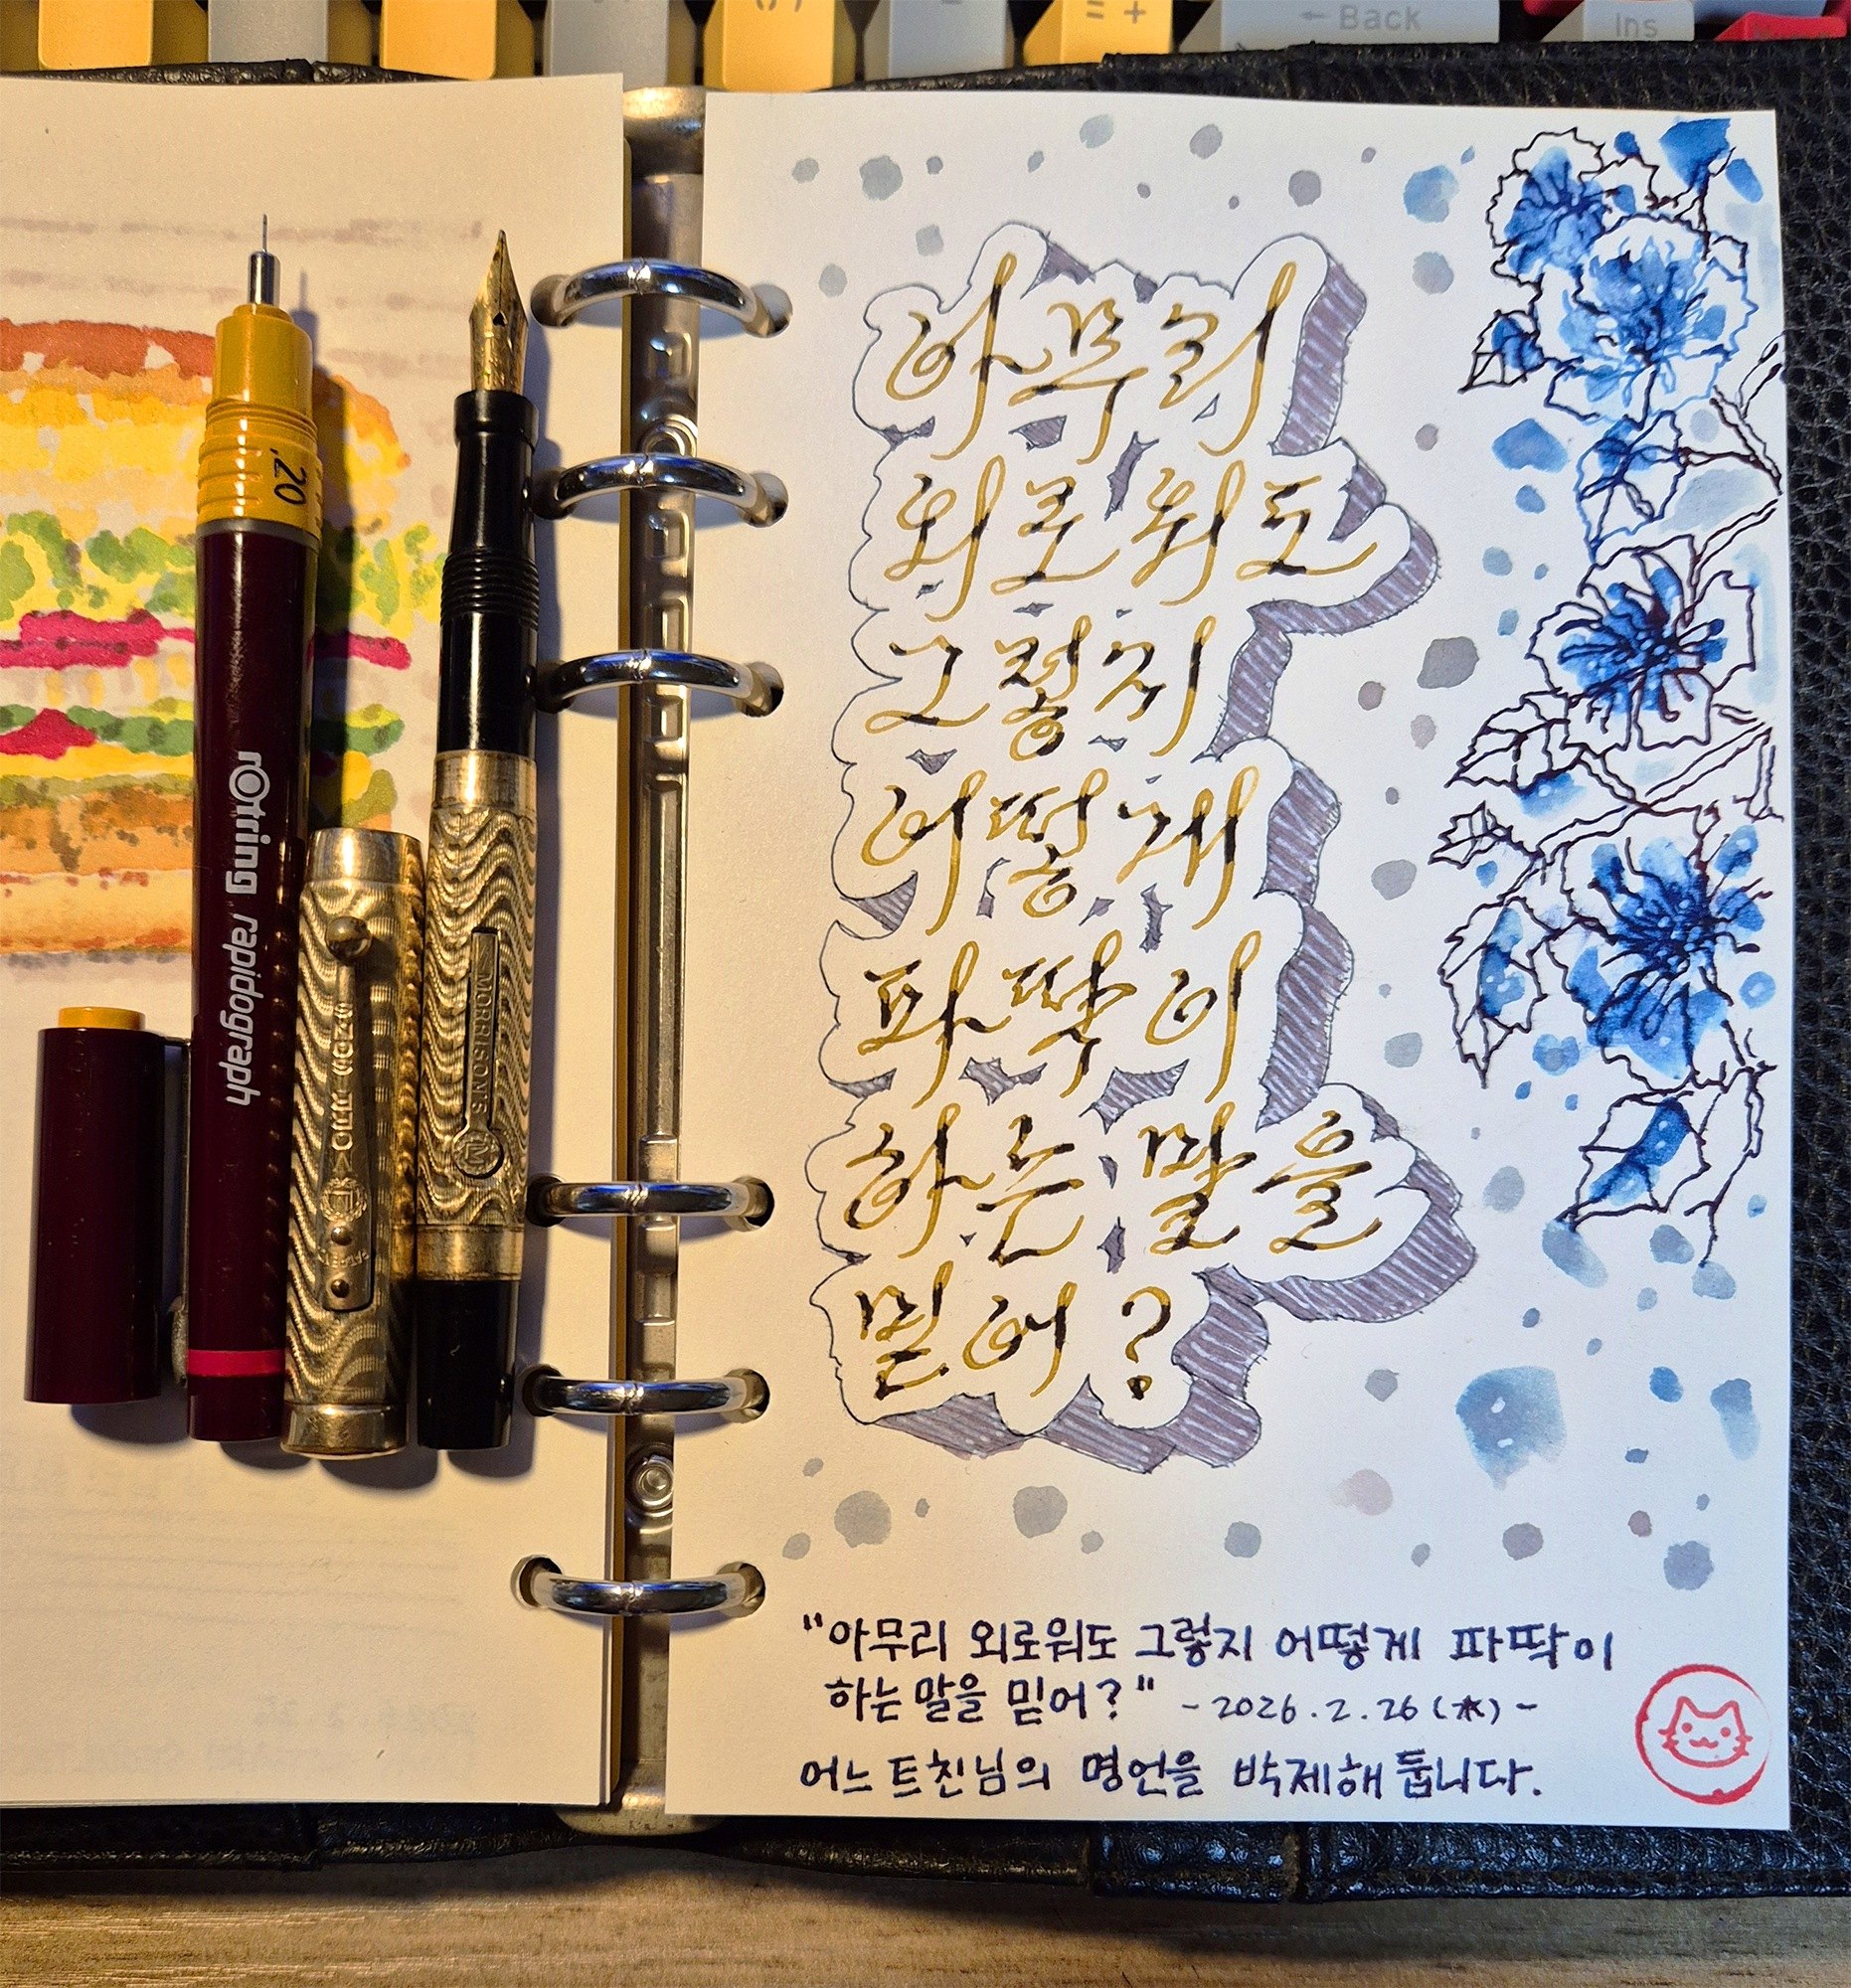 ← Back
Ins
= +
.20
rOtring rapidograph
MORRISON'S
M
아무리
외로워도
그렇지
어떻게
파딱이
하는 말을
믿어?
"아무리 외로워도 그렇지 어떻게 파딱이
하는 말을 믿어?" - 2026.2.26(木) -
어느 트친님의 명언을 박제해 둡니다.